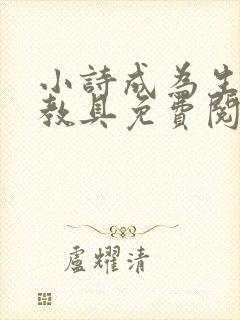 小詩成為生
教具免費閱
盧耀清